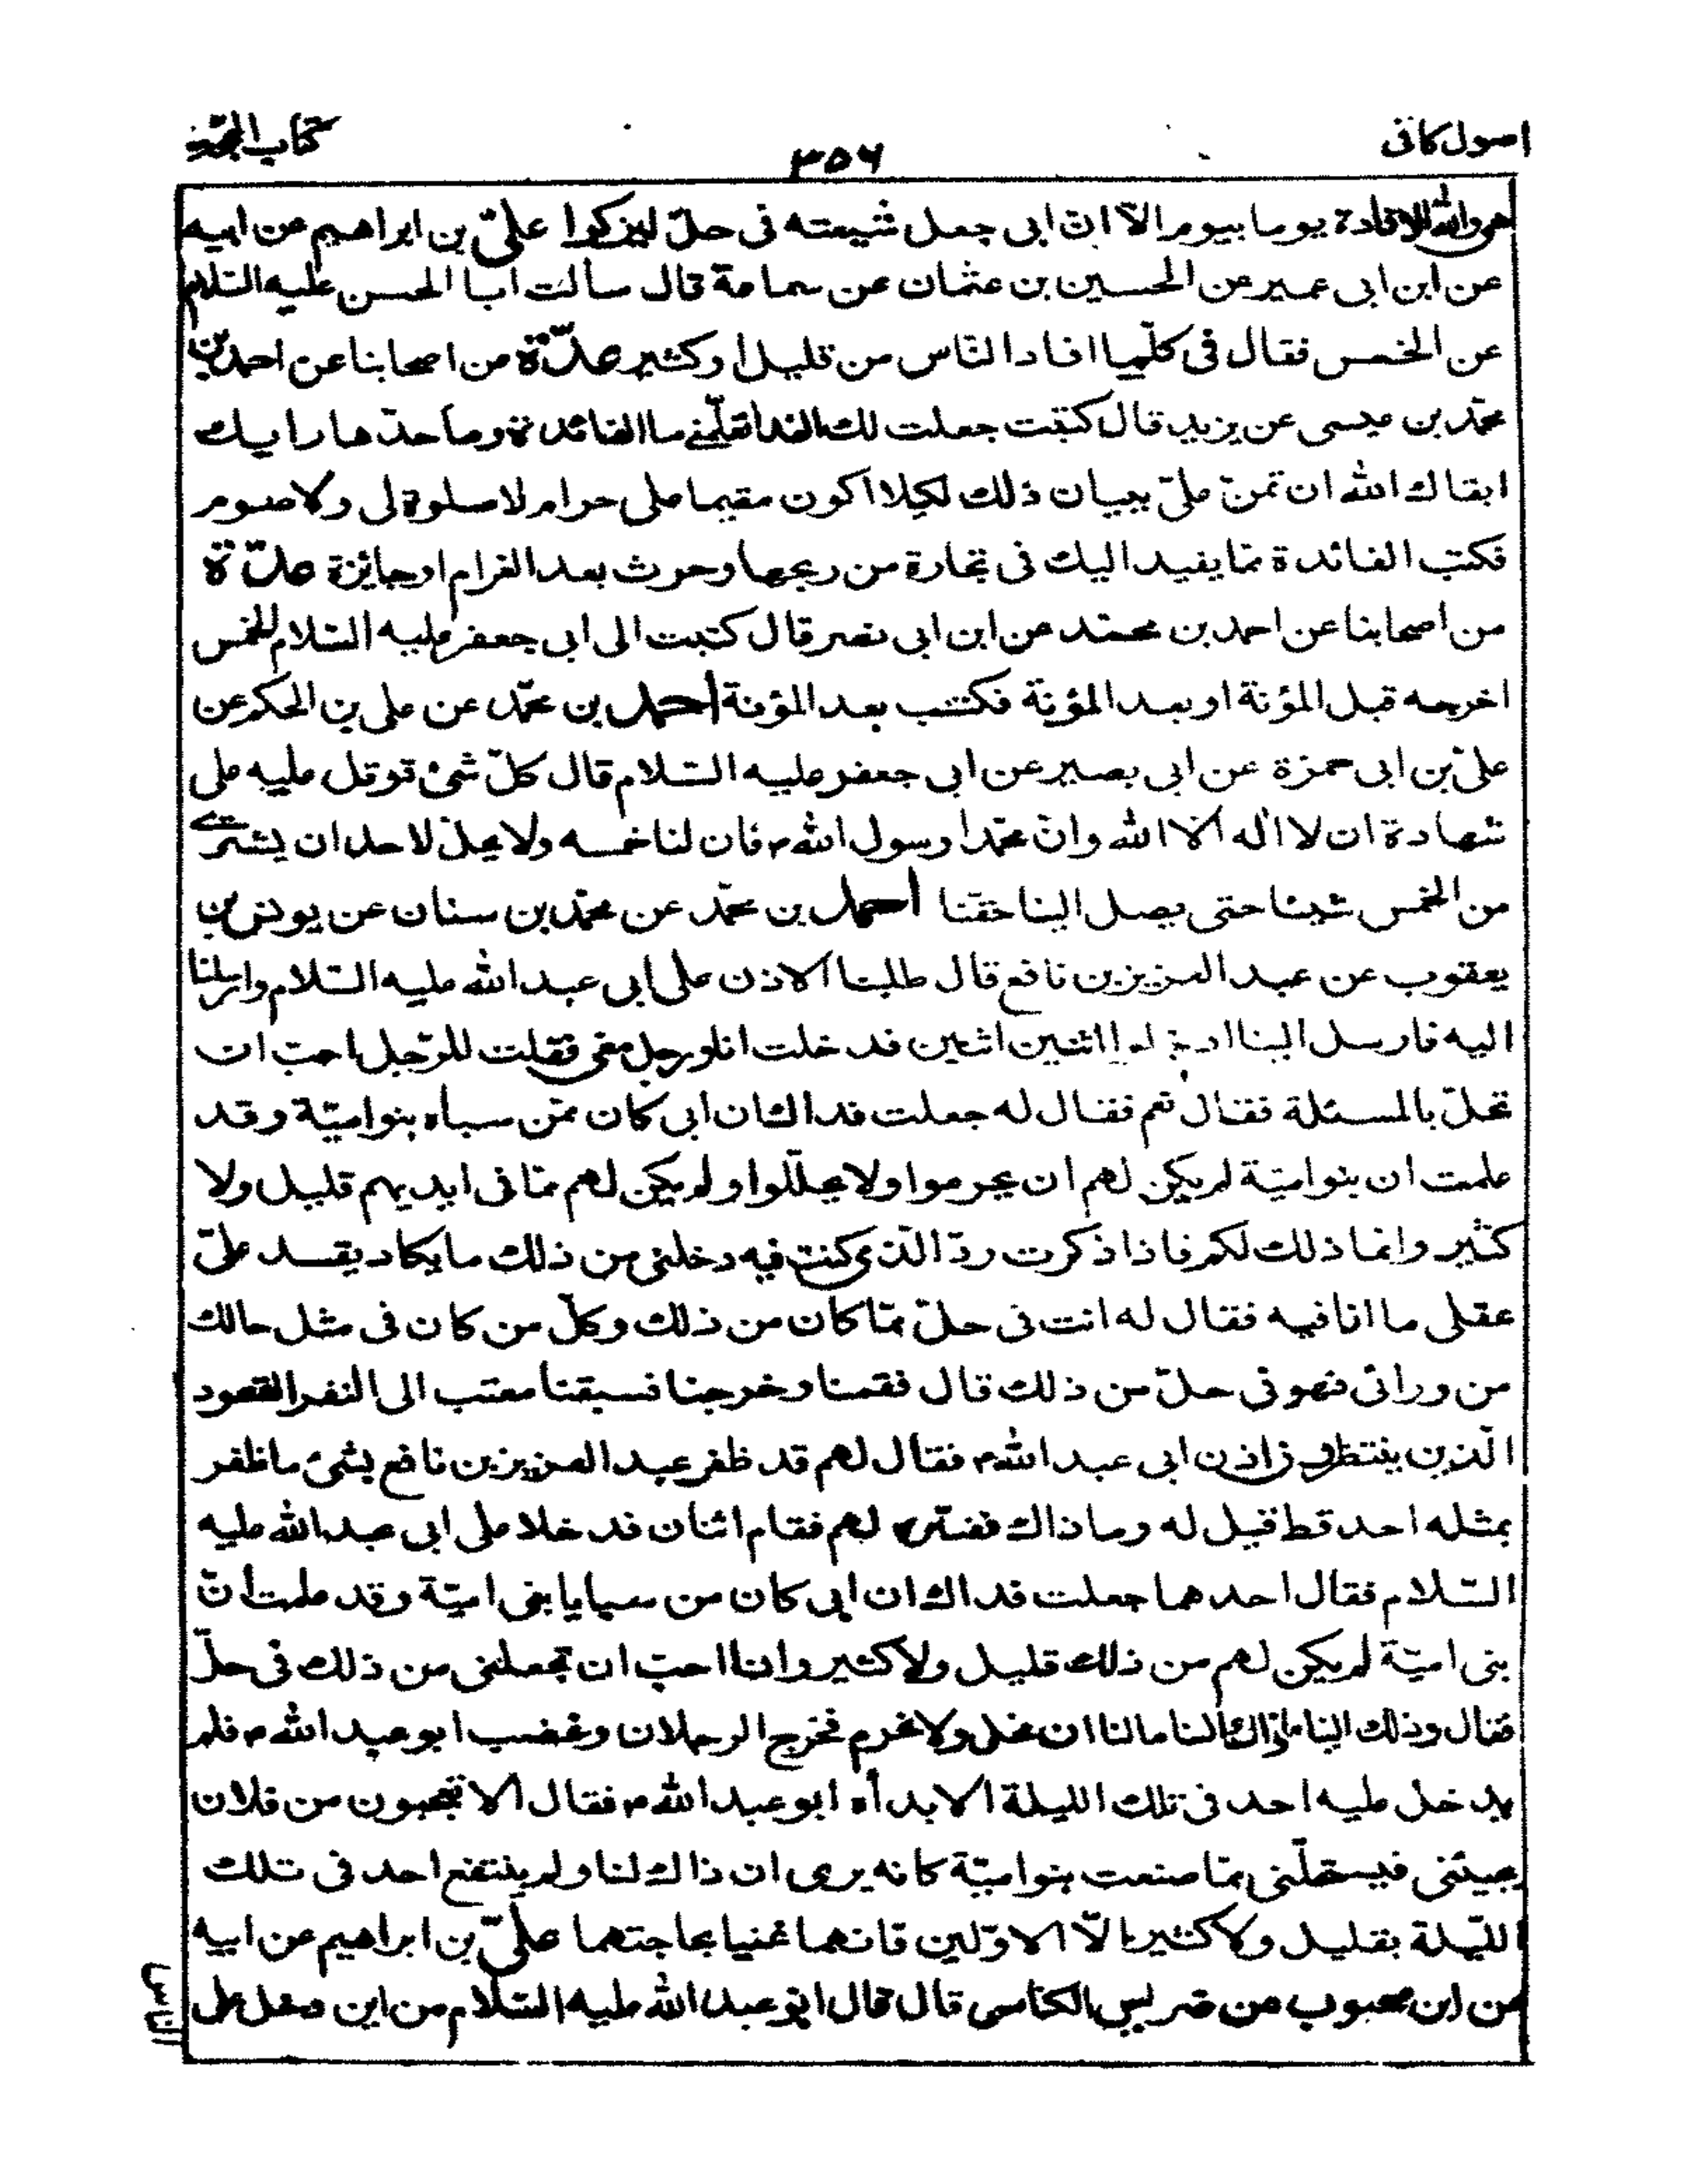 اصول كافى
٣٥٦
كتاب الحجّة
هى والله الافادة يوما بيوم الاّ انّ ابى جعل شيعته فى حلّ ليزكوا علىّ بن ابراهيم عن ابيه
عن ابن ابى عمير عن الحسين بن عثمان عن سماعة قال سألت ابا الحسن عليه السّلام
عن الخمس فقال فى كلّما افاد النّاس من قليل او كثير عدّة من اصحابنا عن احمد بن
محمّد بن عيسى عن يزيد قال كتبت جعلت لك الفداء تعلّمنى ما الفائدة وما حدّها رايك
ابقاك الله ان تمنّ علىّ ببيان ذلك لكيلا اكون مقيما على حرام لا صلوة لى ولا صوم
فكتب الفائدة ممّا يفيد اليك فى تجارة من ربحها وحرث بعد الغرام او جايزة عدّة
من اصحابنا عن احمد بن محمّد عن ابن ابى نصر قال كتبت الى ابى جعفر عليه السّلام الخمس
اخرجه قبل المؤنة او بعد المؤنة فكتب بعد المؤنة احمد بن محمّد عن على بن الحكم عن
علىّ بن ابى حمزة عن ابى بصير عن ابى جعفر عليه السّلام قال كلّ شئ قوتل عليه على
شهادة ان لا اله الا الله وانّ محمّدا رسول الله ص فان لنا خمسه ولا يحلّ لاحد ان يشترى
من الخمس شيئا حتى يصل الينا حقّنا احمد بن محمّد عن محمّد بن سنان عن يونس بن
يعقوب عن عبد العزيز بن نافع قال طلبنا الاذن على ابى عبد الله عليه السّلام وارسلنا
اليه فارسل الينا ادخلوا اثنين اثنين فدخلت انا ورجل معى فقلت للرّجل احبّ ان
تحلّ بالمسئلة فقال نعم فقال له جعلت فداك ان ابى كان ممّن سباه بنو اميّة وقد
علمت ان بنو اميّة لم يكن لهم ان يحرموا ولا يحلّلوا ولم يكن لهم ممّا فى ايديهم قليل ولا
كثير وانّما ذلك لكم فاذا ذكرت ردّ الّذى كنت فيه دخلنى من ذلك ما يكاد يفسد علىّ
عقلى ما انا فيه فقال له انت فى حلّ ممّا كان من ذلك وكلّ من كان فى مثل حالك
من ورائى فهو فى حلّ من ذلك قال فقمنا وخرجنا فسبقنا معتب الى النفر القعود
الّذين ينتظرون اذن ابى عبد الله ع فقال لهم قد ظفر عبد العزيز بن نافع بشئ ما ظفر
بمثله احد قط قيل له وما ذاك ففسّره لهم فقام اثنان فدخلا على ابى عبد الله عليه
السّلام فقال احدهما جعلت فداك ان ابى كان من سبايا بنى اميّة وقد علمت انّ
بنى اميّة لم يكن لهم من ذلك قليل ولا كثير وانا احبّ ان تجعلنى من ذلك فى حلّ
فقال وذلك الينا ما ذاك الينا ما لنا ان نحل ولا نحرم فخرج الرجلان وغضب ابو عبد الله ع فلم
يدخل عليه احد فى تلك الليلة الا بدأه ابو عبد الله ع فقال الا تعجبون من فلان
يجيئنى فيستحلّنى ممّا صنعت بنو اميّة كانه يرى ان ذاك لنا ولم ينتفع احد فى تلك
اللّيلة بقليل ولا كثير الاّ الاوّلين فانهما غنيا بحاجتهما علىّ بن ابراهيم عن ابيه
عن ابن محبوب عن ضريس الكناسى قال قال ابو عبد الله عليه السّلام من اين دخل على
الناس